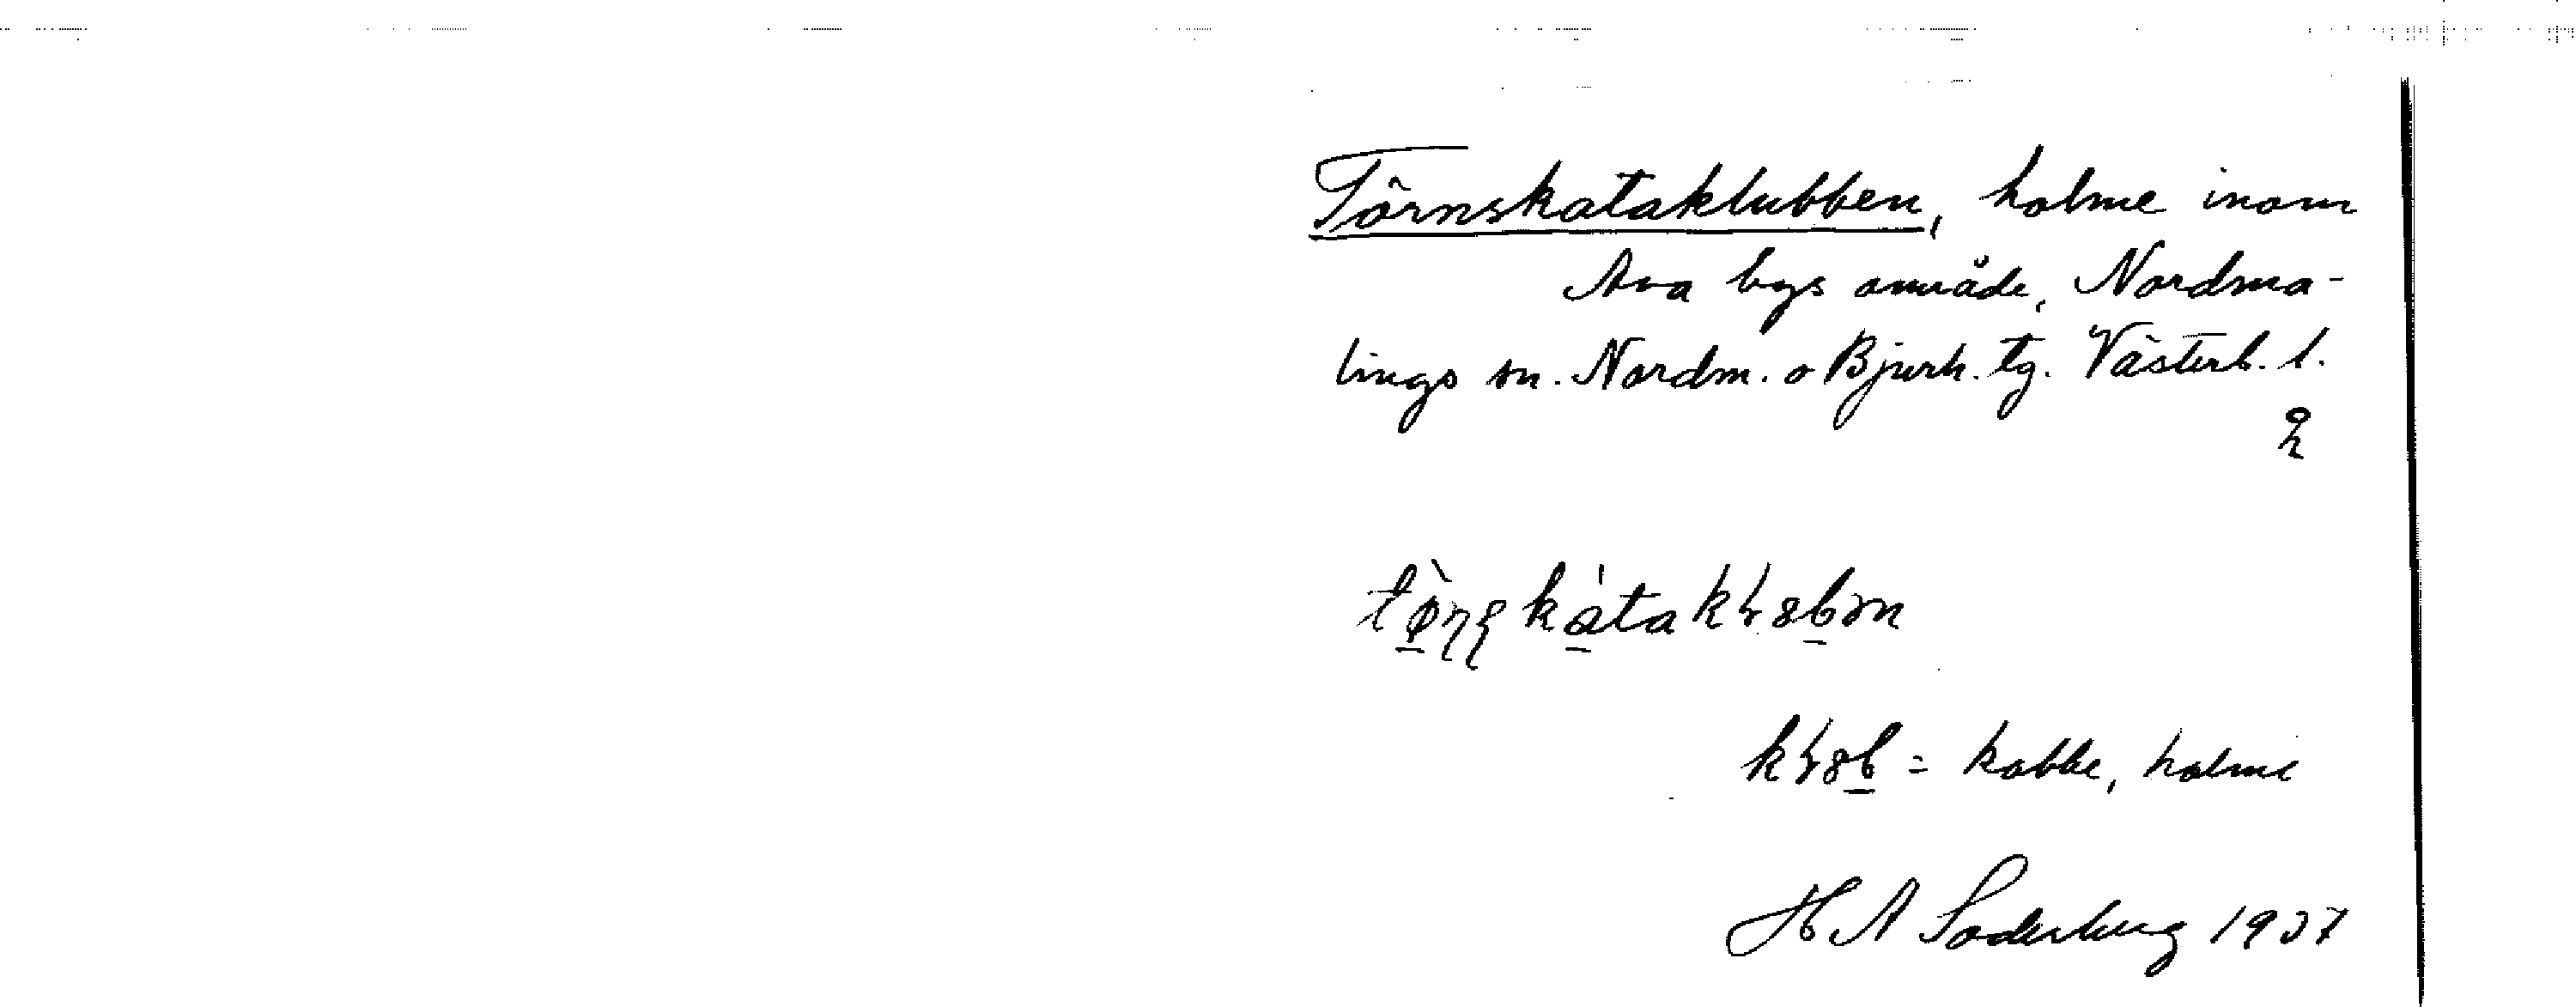 Törnskataklubben, holme inom
Ava bys område, Nordma-
lings sn. Nordm. o Bjurh. tg. Västerb. l.
= kobbe, holme
H A Söderberg 1937